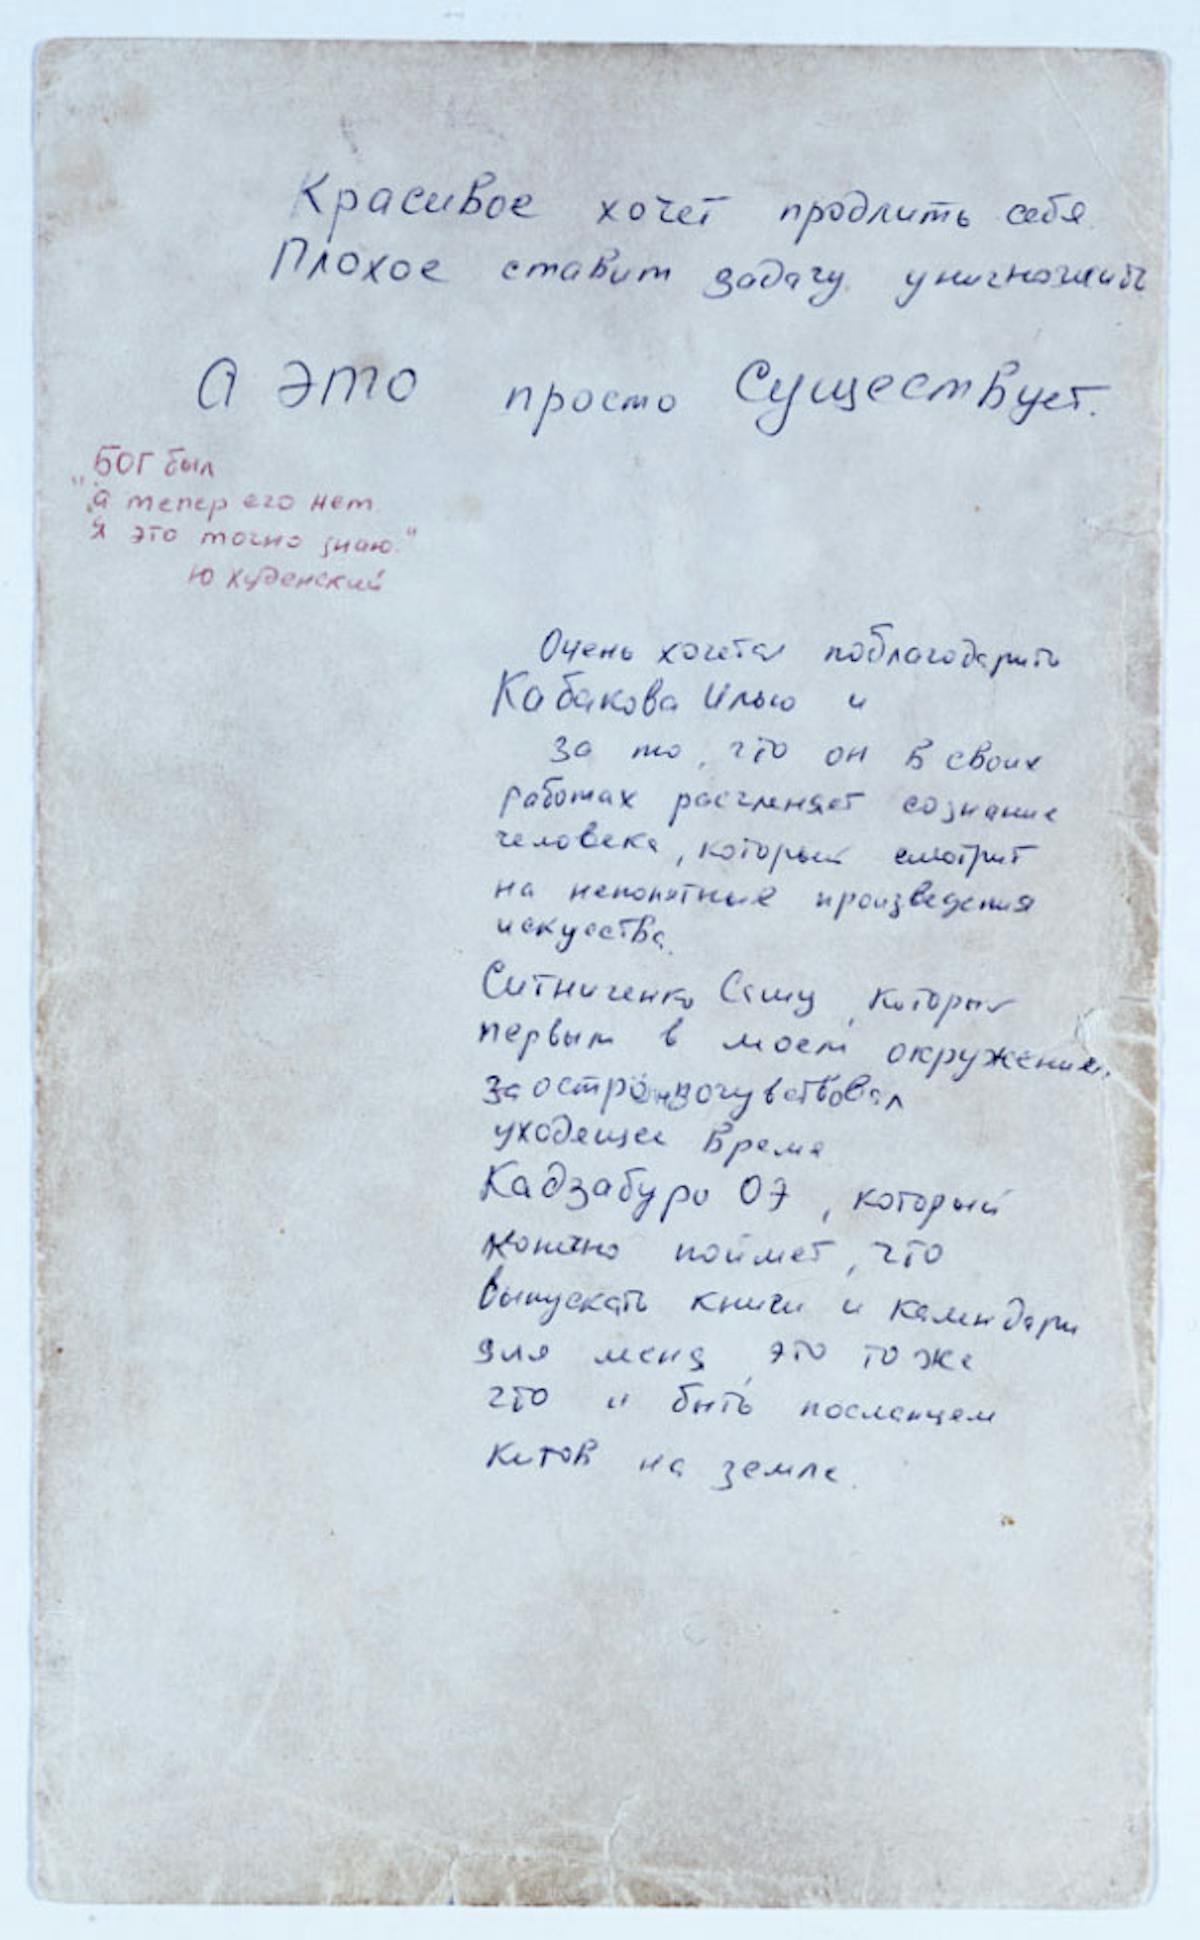 Красивое хочет продлить себя.
Плохое ставит задачу уничтожить
А это просто Существует.
"БОГ был
а тепер его нет
Я это точно знаю."
Ю Худенский
Очень хочется поблагодарить
Кабакова Илью и
за то, что он в своих
работах расчленяет сознание
человека, который смотрит
на непонятные произведения
искуства.
Ситниченко Сашу, который
первым в моем окружении,
заостренно
уходящее время
Кадзабуро ОЭ, который
конечно поймет, что
выпускать книги и календари
для меня, это тоже
что и быть посланцем
китов на земле.